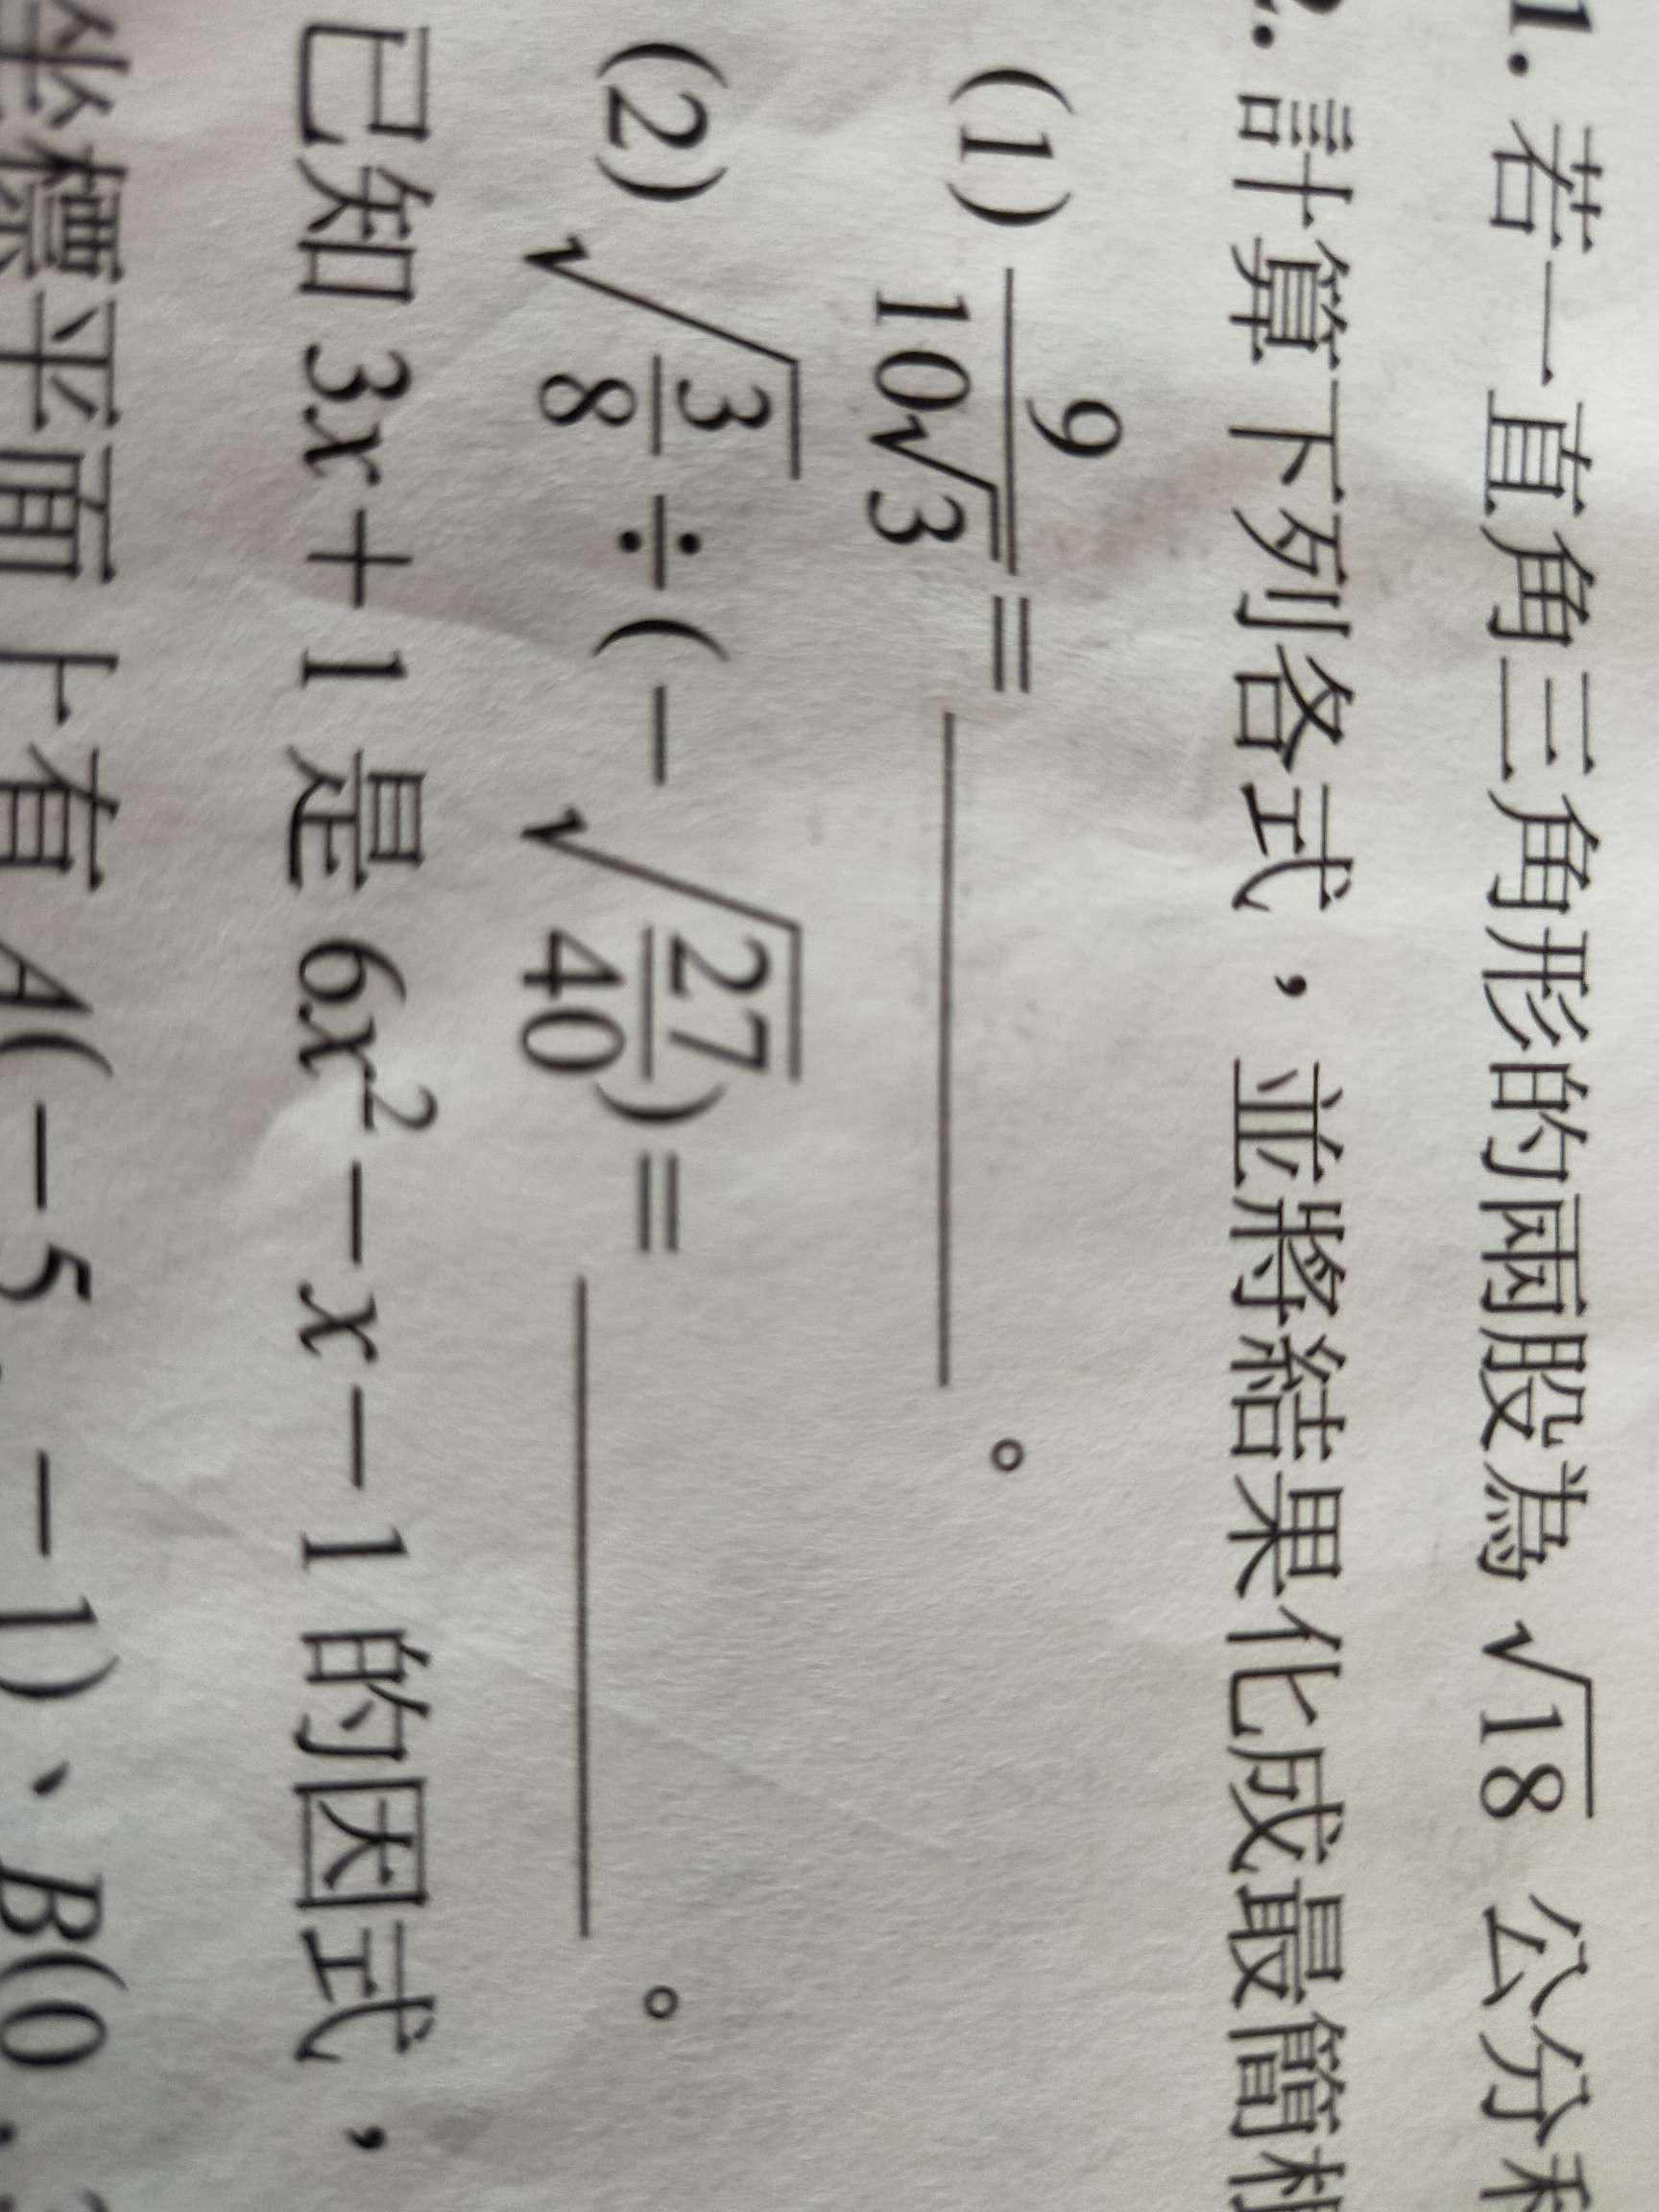 1. 若一直角三角形的兩股為 √18 公分和
2. 計算下列各式，並將結果化成最簡根
(1) 9/(10√3) = ______。
(2) √(3/8) ÷ (−√(27/40)) = ______。
已知 3x + 1 是 6x² − x − 1 的因式，
坐標平面上有 A(−5, −1)、B(0,